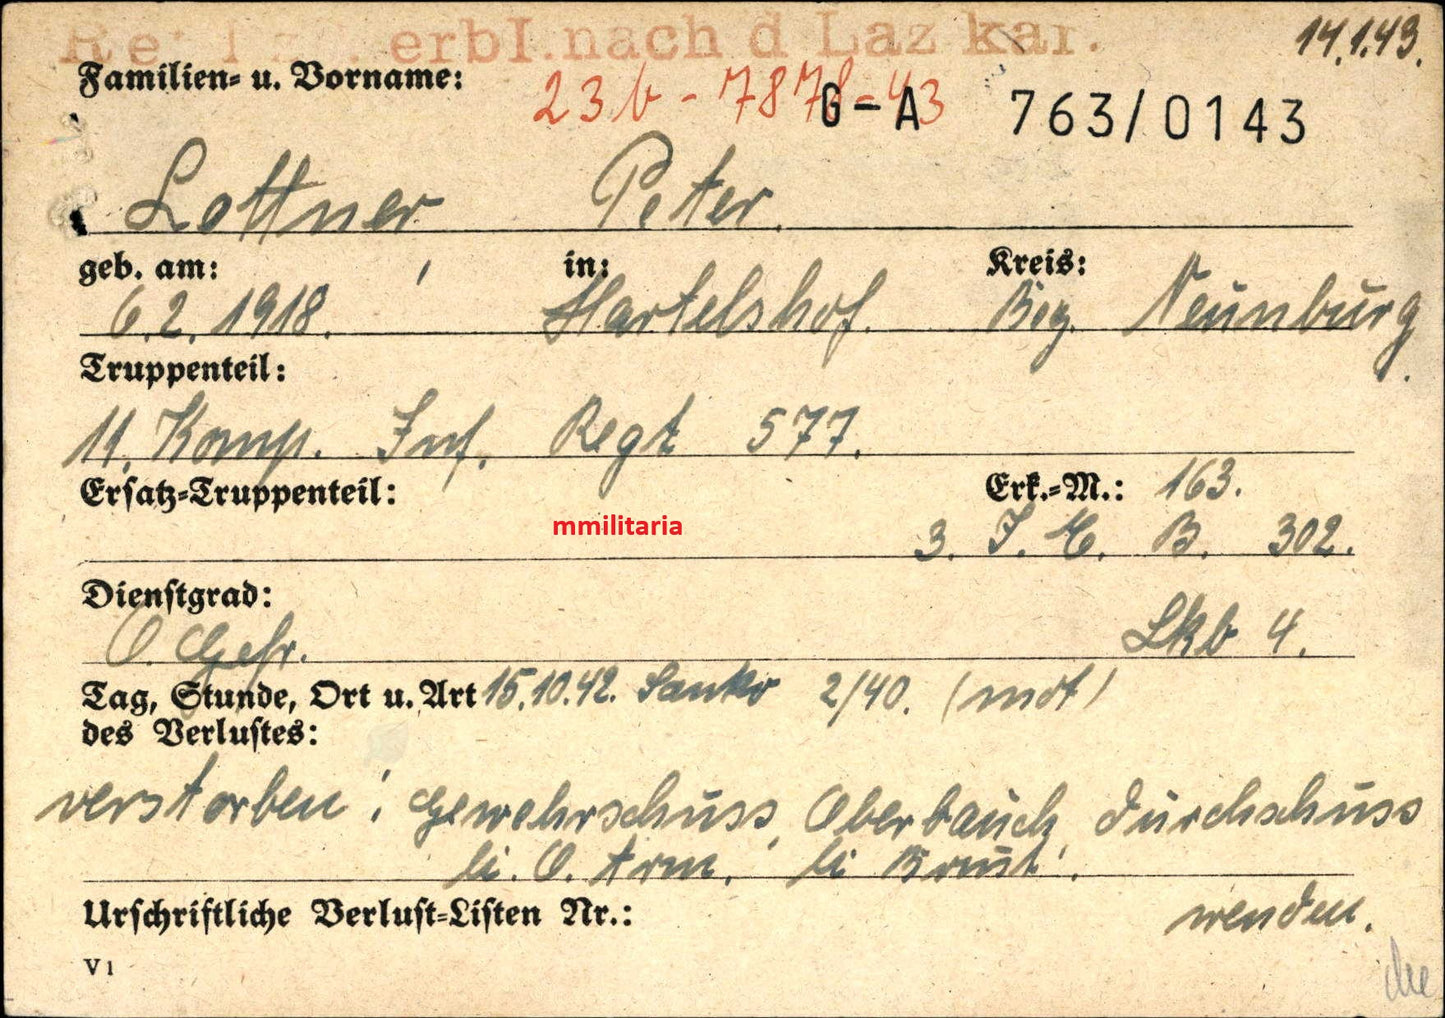 erbl. nach d Laz kar.
14.1.43.
Familien- u. Vorname:
23b - 7878-43
G-A 763/0143
Lottner Peter.
geb. am: in: Kreis:
6.2.1918. Hartelshof. Neunburg.
Truppenteil:
11. Komp. Inf. Regt 577.
Ersatz-Truppenteil: Erk.-M.: 163.
mmilitaria
3. I. E. B. 302.
Dienstgrad:
O. Gefr. Lkb 4.
Tag, Stunde, Ort u. Art 15.10.42. Sanko 2/40. (mot)
des Verlustes:
verstorben; Gewehrschuss, Oberbauch, Durchschuss
li. O. Arm, li Brust.
Urschriftliche Verlust-Listen Nr.:
wenden.
V1